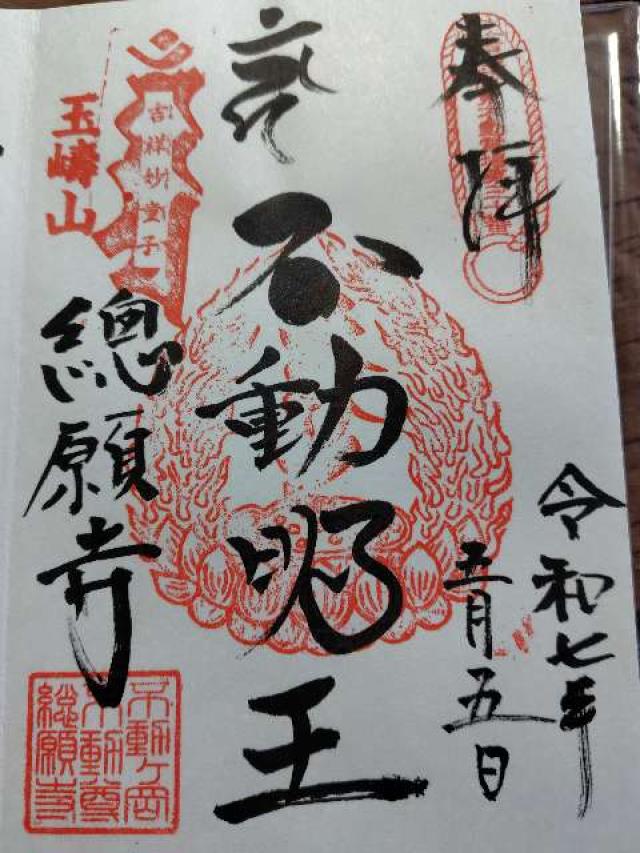 奉拝
令和七年
五月五日
不動明王
吉祥妙童子
玉嶹山
總願寺
不動ヶ岡
不動尊
總願寺